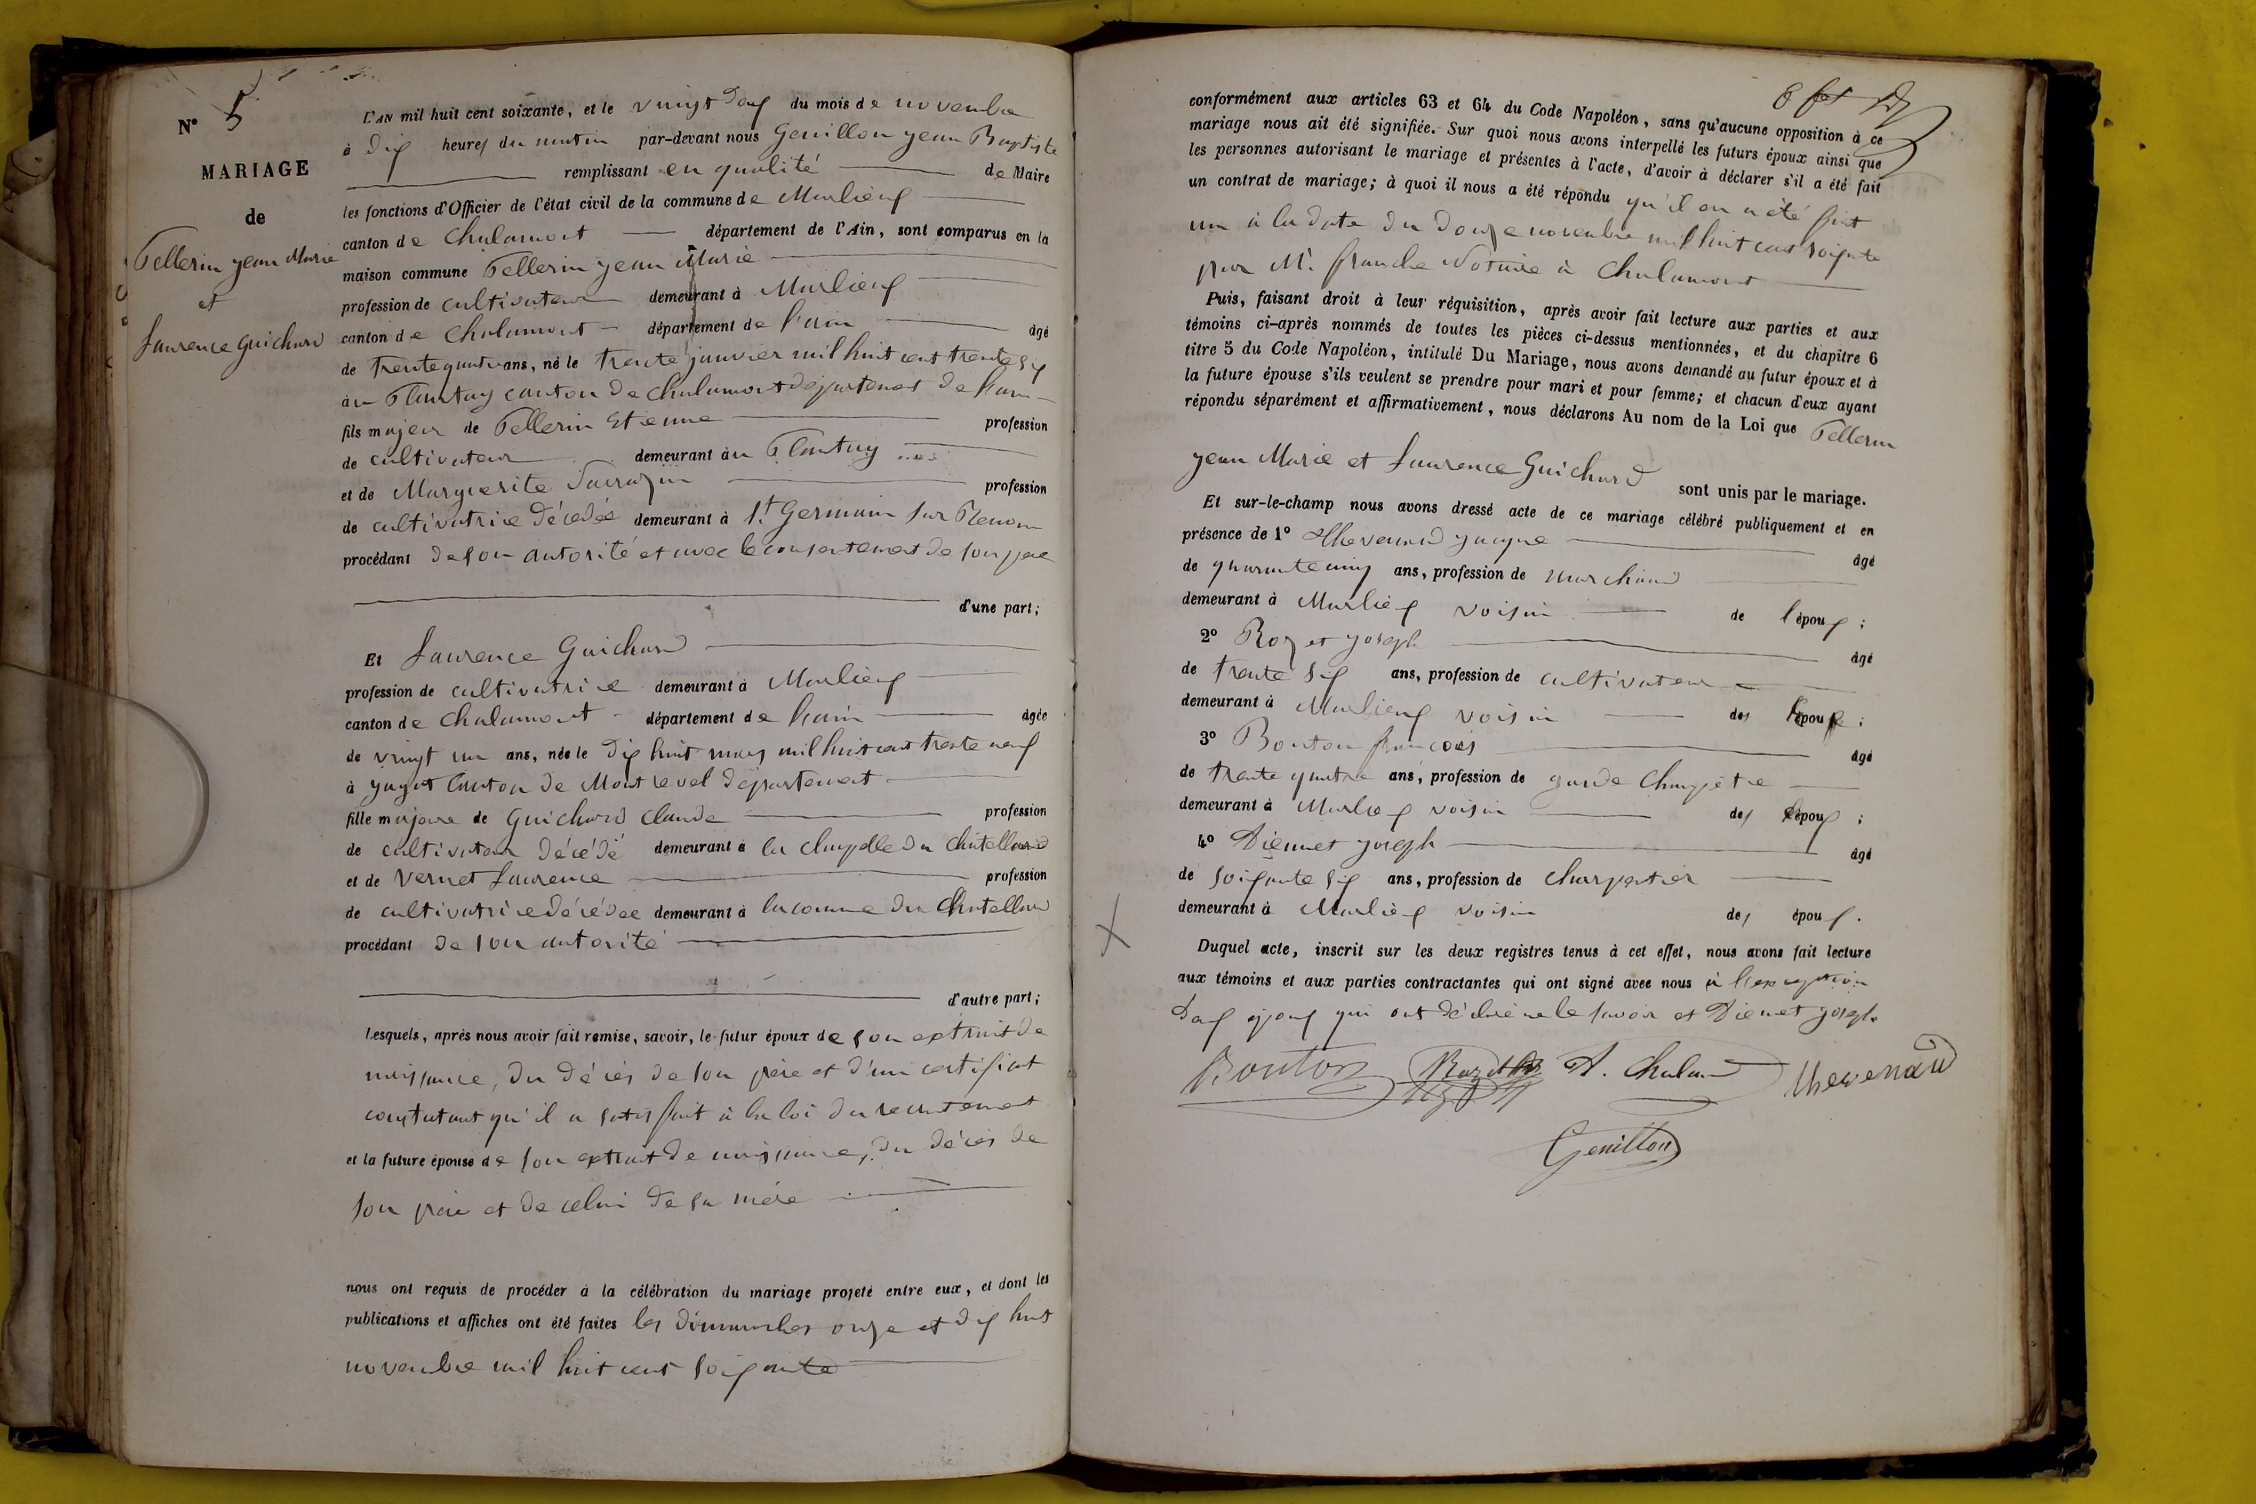 N° 5
MARIAGE
de
Pellerin jean Marie
et
Laurence Guichard
L'AN mil huit cent soixante, et le vingt deux du mois de novembre
à dix heures du matin par-devant nous Genillon jean Baptiste
remplissant en qualité de Maire
les fonctions d'Officier de l'état civil de la commune de Marlieux
canton de Chalamont département de l'Ain, sont comparus en la
maison commune Pellerin jean Marie
profession de cultivateur demeurant à Marlieux
canton de Chalamont département de l'ain âgé
de trente quatre ans, né le trente janvier mil huit cent trente six
au Plantay canton de Chalamont département de l'ain
fils majeur de Pellerin Etienne profession
de cultivateur demeurant au Plantay
et de Marguerite Sarrazin profession
de cultivatrice décédée demeurant à St Germain sur Renom
procédant de son autorité et avec le consentement de son père
d'une part;
Et Laurence Guichard
profession de cultivatrice demeurant à Marlieux
canton de Chalamont département de l'ain âgée
de vingt un ans, née le dix huit mars mil huit cent trente neuf
à jayat Canton de Montrevel département
fille majeure de Guichard Claude profession
de cultivateur décédé demeurant à la chapelle du Châtellard
et de Vernet Laurence profession
de cultivatrice décédée demeurant à la comune du Chatellard
procédant de son autorité
d'autre part;
Lesquels, après nous avoir fait remise, savoir, le futur époux de son extrait de
naissance, du décès de son père et d'un certificat
constatant qu'il a satisfait à la loi du recrutement
et la future épouse de son extrait de naissance, du décès de
son père et de celui de sa mère
nous ont requis de procéder à la célébration du mariage projeté entre eux, et dont les
publications et affiches ont été faites les dimanches onze et dix huit
novembre mil huit cent soixante
conformément aux articles 63 et 64 du Code Napoléon, sans qu'aucune opposition à ce
mariage nous ait été signifiée. Sur quoi nous avons interpellé les futurs époux ainsi que
les personnes autorisant le mariage et présentes à l'acte, d'avoir à déclarer s'il a été fait
un contrat de mariage; à quoi il nous a été répondu qu'il en a été fait
un à la date du douze novembre mil huit cent soixante
par Mr. franche Notaire à Chalamont
Puis, faisant droit à leur réquisition, après avoir fait lecture aux parties et aux
témoins ci-après nommés de toutes les pièces ci-dessus mentionnées, et du chapitre 6
titre 5 du Code Napoléon, intitulé Du Mariage, nous avons demandé au futur époux et à
la future épouse s'ils veulent se prendre pour mari et pour femme; et chacun d'eux ayant
répondu séparément et affirmativement, nous déclarons Au nom de la Loi que Pellerin
jean Marie et Laurence Guichard sont unis par le mariage.
Et sur-le-champ nous avons dressé acte de ce mariage célébré publiquement et en
présence de 1° Thevenard jacque âgé
de quarante cinq ans, profession de marchand
demeurant à Marlieux voisin de l'époux;
2° Rozet joseph âgé
de trente six ans, profession de cultivateur
demeurant à Marlieux voisin des époux;
3° Bouton françois âgé
de trente quatre ans, profession de garde champêtre
demeurant à Marlieux voisin des époux;
4° Diennet joseph âgé
de soixante six ans, profession de charpentier
demeurant à Marlieux voisin des époux.
Duquel acte, inscrit sur les deux registres tenus à cet effet, nous avons fait lecture
aux témoins et aux parties contractantes qui ont signé avec nous à l'exception
des époux qui ont déclaré ne le savoir et Diennet joseph
Bouton Rozet A. Chaland Thevenard
Genillon